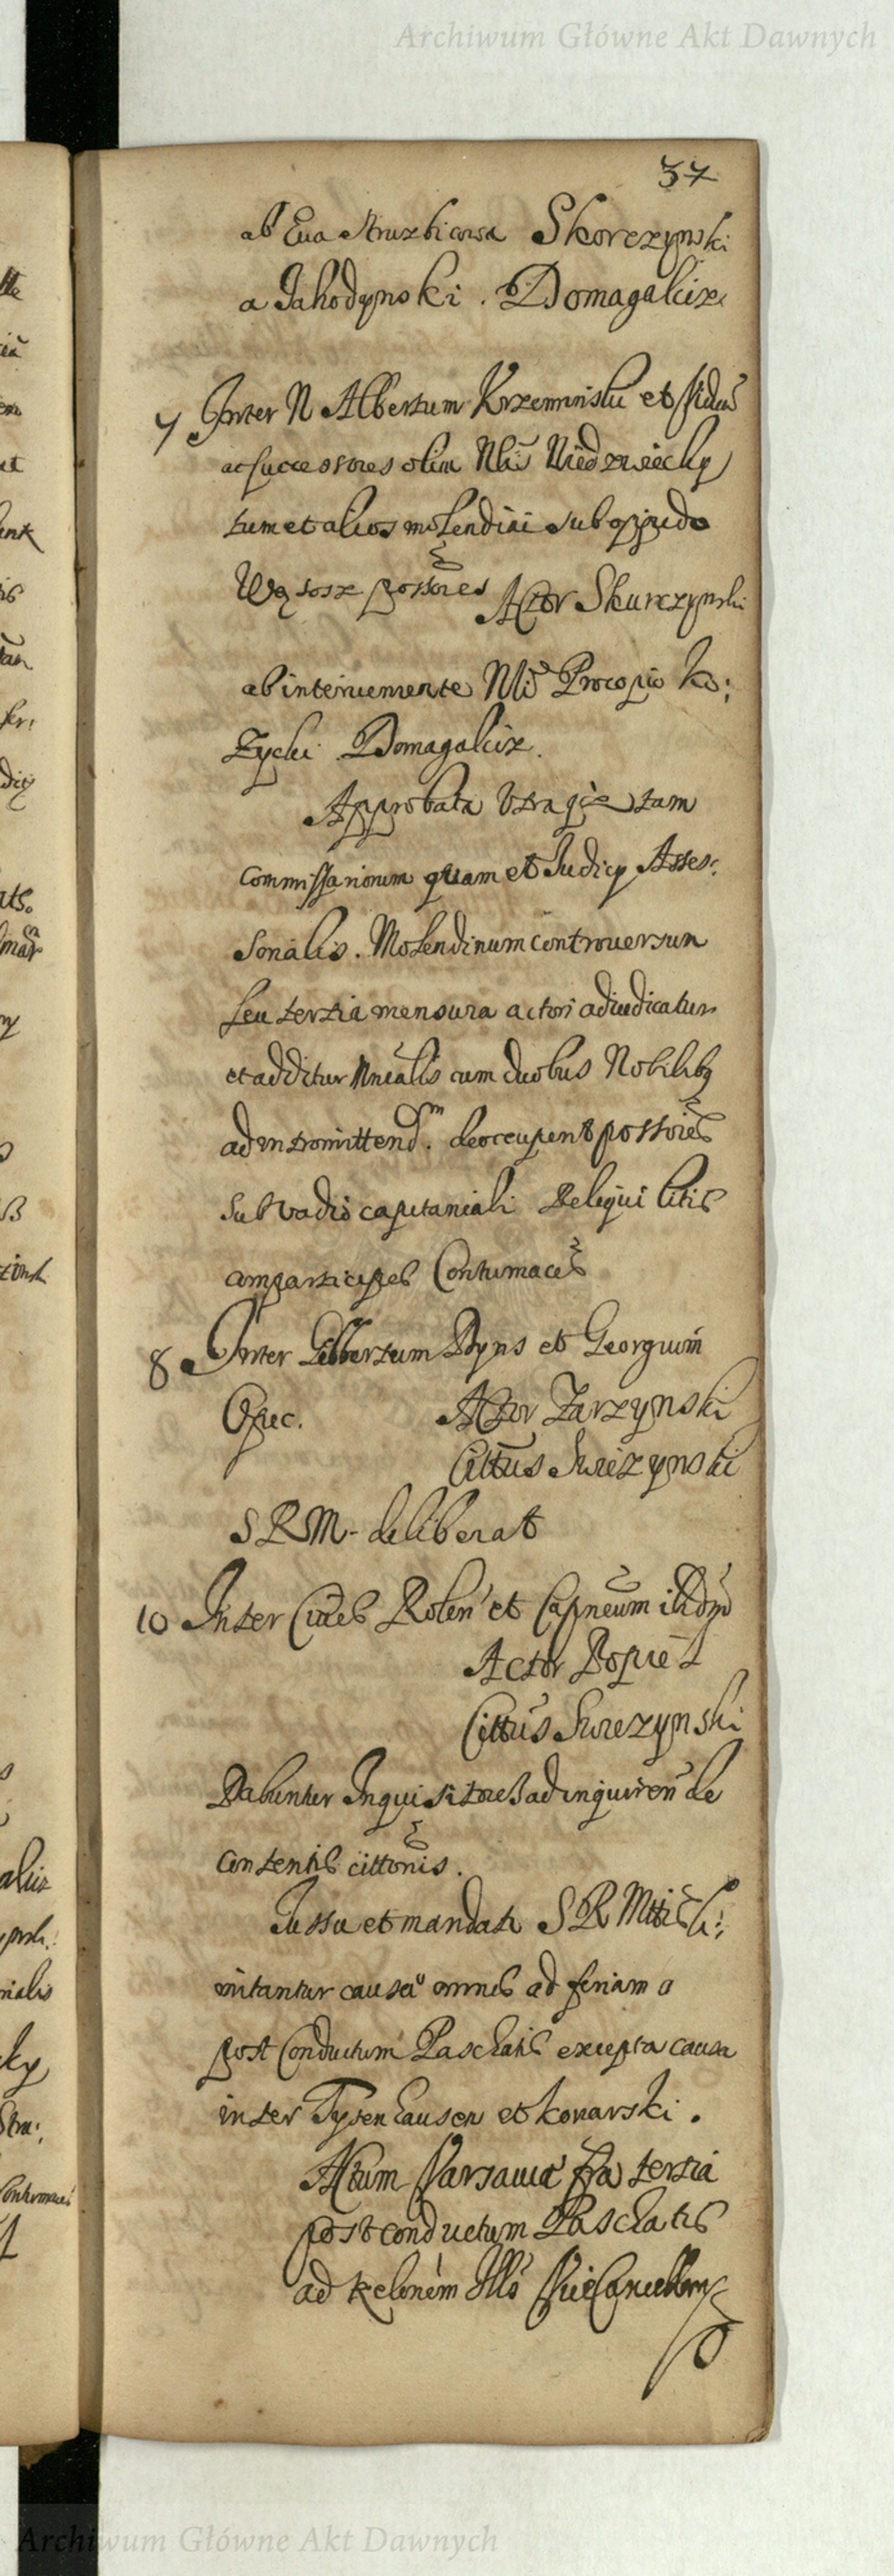 Archiwum Główne Akt Dawnych
37
ab Eua Skorczynski
a Jahodynski. Domagalicz
7 Inter N Albertum Krzeminski et Vidua
ac successores olim Nlis Niedzwiecky
tum et alios molendini sub oppido
Wąsosz possores Actor Skurczynski
ab interueniente Nli Procopio Ko:
zycki Domagalicz.
Approbata vtraq tam
commissariorum quam et Judicij Asses:
sorialis. Molendinum controuersum
seu tertia mensura actori adiudicatur
et additur Mnialis cum duobus Nobilib9
ad intromittend. deoccupent possores
sub vadio capitaneali Reliqui litis
comparticipes Contumaces
8 Inter Gilbertum Ryns et Georgium
Opec. Actor Zarzynski
Cittus Swiezynski
SRM deliberat
10 Inter Ciues Rolen et Capneum ibidm
Actor Popiel
Cittus Swiezynski
Dabuntur Inquisitores ad inquiren de
contentis cittonis.
Jussu et mandato SRMttis li:
mitantur causa omnes ad feriam a
post Conductum Paschatis excepta causa
inter Tysenhausen et Konarski.
Actum Varsauia fra tertia
post conductum Paschatis
ad relonem Illo Vice Cancell
Archiwum Główne Akt Dawnych